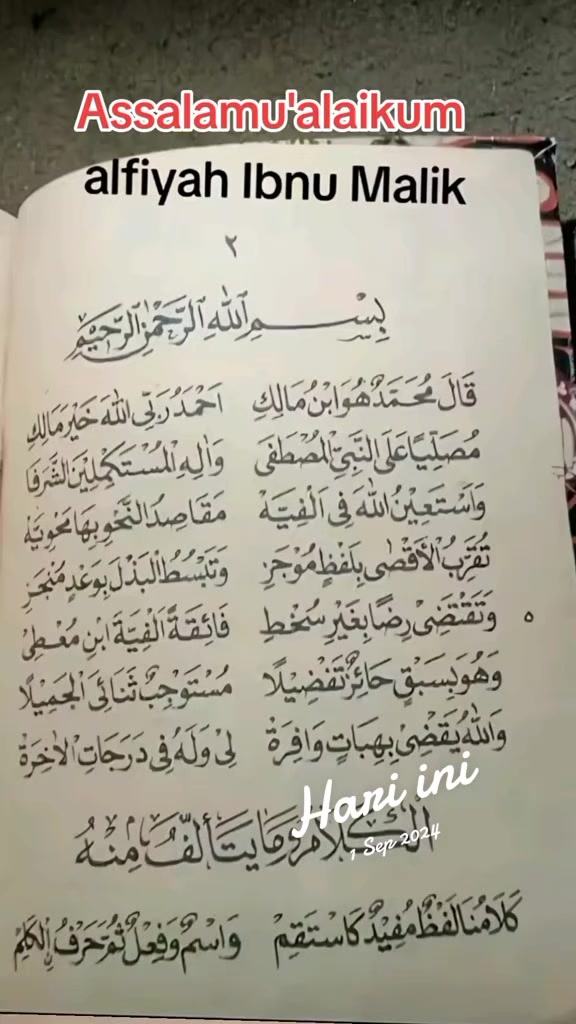 Assalamu'alaikum
alfiyah Ibnu Malik
٢
بِسْمِ اللهِ الرَّحْمٰنِ الرَّحِيْمِ
قَالَ مُحَمَّدٌ هُوَ ابْنُ مَالِكِ اَحْمَدُ رَبِّى اللهَ خَيْرَ مَالِكِ
مُصَلِّيًا عَلَى النَّبِىِّ الْمُصْطَفَى وَاٰلِهِ الْمُسْتَكْمِلِيْنَ الشَّرَفَا
وَاَسْتَعِيْنُ اللهَ فِى اَلْفِيَّهْ مَقَاصِدُ النَّحْوِ بِهَا مَحْوِيَّهْ
تُقَرِّبُ الْأَقْصٰى بِلَفْظٍ مُوْجَزِ وَتَبْسُطُ الْبَذْلَ بِوَعْدٍ مُنْجَزِ
وَتَقْتَضِىْ رِضًا بِغَيْرِ سُخْطِ فَائِقَةً اَلْفِيَّةَ ابْنِ مُعْطِىْ ٥
وَهُوَ بِسَبْقٍ حَائِزٌ تَفْضِيْلًا مُسْتَوْجِبٌ ثَنَائِىَ الْجَمِيْلَا
وَاللهُ يَقْضِىْ بِهِبَاتٍ وَافِرَةْ لِىْ وَلَهُ فِى دَرَجَاتِ الْاٰخِرَةْ
Hari ini
1 Sep 2024
الْكَلَامُ وَمَا يَتَأَلَّفُ مِنْهُ
كَلَامُنَا لَفْظٌ مُفِيْدٌ كَاسْتَقِمْ وَاسْمٌ وَفِعْلٌ ثُمَّ حَرْفُ الْكَلِمْ